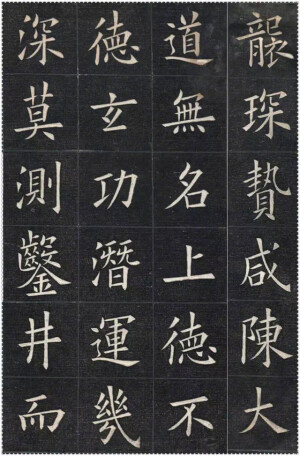 襲琛贄咸陳大
道無名上德不
德玄功潛運幾
深莫測鑿井而